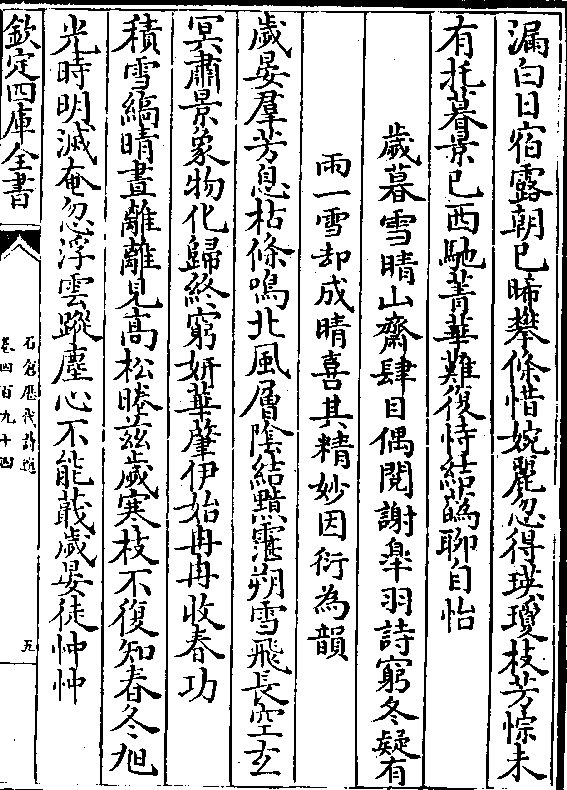 漏白日宿露朝已晞攀條惜婉麗忽得瑛瓊枝芳悰未
有托暮景已西馳菁華難復恃結蘤聊自怡
歲暮雪晴山齋肆目偶閱謝臯羽詩窮冬疑有
雨一雪却成晴喜其精妙因衍為韻
歲晏羣芳息枯條鳴北風層陰結黮䨴朔雪飛長空玄
冥肅景象物化歸終窮妍華肇伊始冉冉收春功
積雪縞晴晝離離見高松睠兹歲寒枝不復知春冬旭
光時明滅奄忽浮雲蹤塵心不能蕺歲晏徒忡忡
欽定四庫全書
石倉歷代詩選
卷四百九十四
五